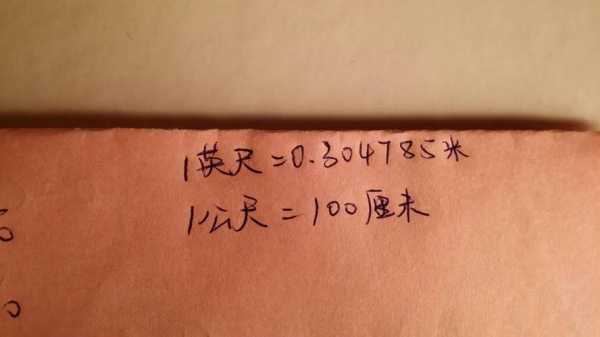 1英尺=0.304785米
1公尺=100厘米